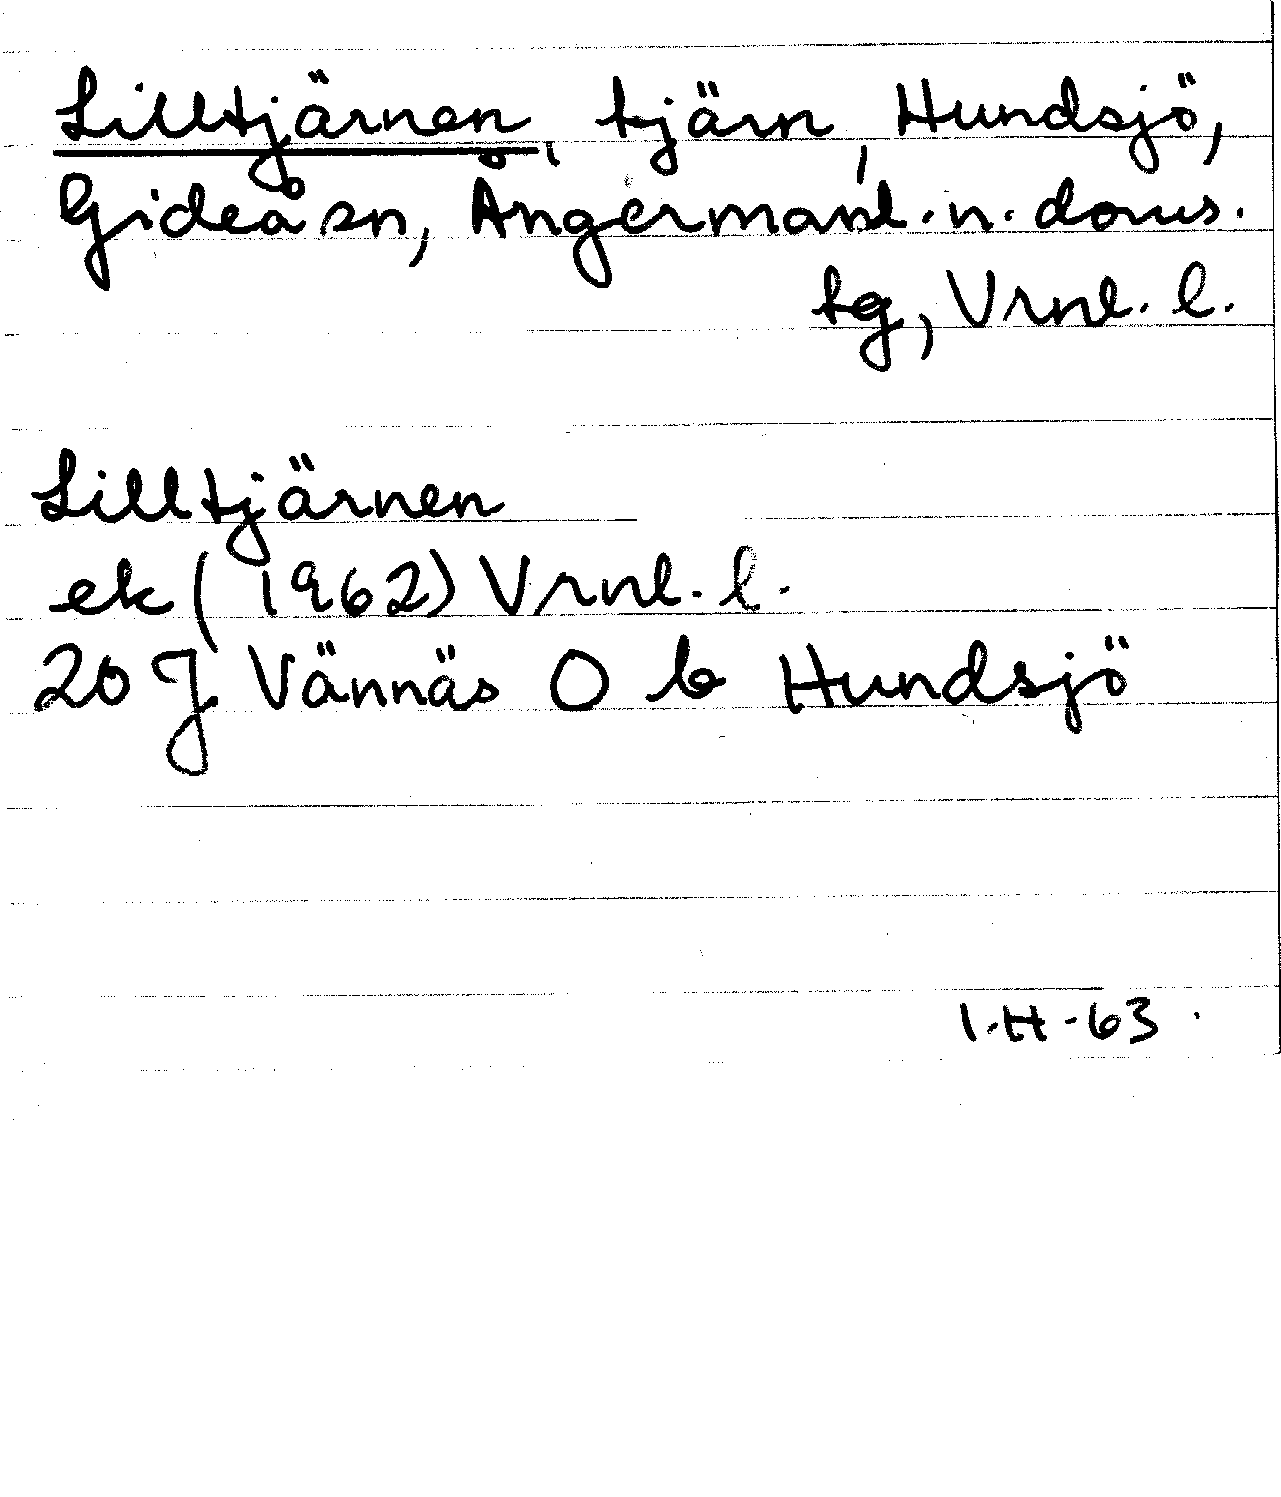 Lilltjärnen, tjärn, Hundsjö,
Gideå sn, Ångermanl. n. doms.
tg, Vrnl. l.
Lilltjärnen
ek (1962) Vrnl. l.
20 J Vännäs O b Hundsjö
I.H-63.